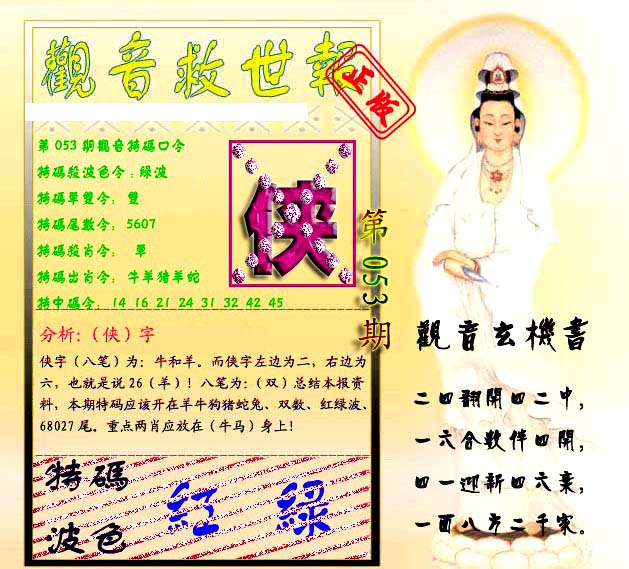 觀音救世報
正版
第053期觀音特碼口令
特碼殺波色令:綠波
特碼單雙令: 雙
特碼尾數令: 5607
特碼殺肖令: 單
特碼出肖令: 牛羊猪羊蛇
特中碼令: 14 16 21 24 31 32 42 45
侠
第053期
分析:(侠)字
侠字(八笔)为:牛和羊。而侠字左边为二,右边为
六,也就是说26(羊)!八笔为:(双)总结本报资
料,本期特码应该开在羊牛狗猪蛇兔、双数、红绿波、
68027尾。重点两肖应放在(牛马)身上!
特碼
波色
紅 綠
觀音玄機書
二四翻開四二中,
一六合數伴四開,
四一迎新四六来,
一面八方二千家。